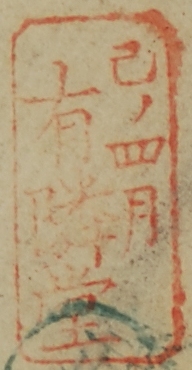 己ノ四月
有隣堂